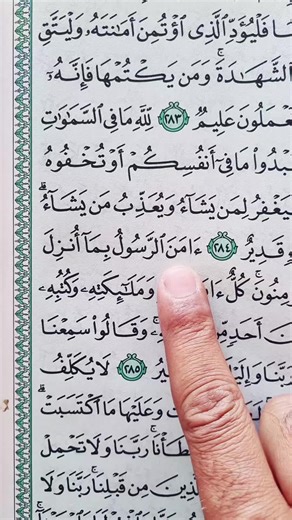 فَلْيُؤَدِّ الَّذِي اؤْتُمِنَ أَمَانَتَهُۥ وَلْيَتَّقِ
الشَّهَادَةَ ۚ وَمَن يَكْتُمْهَا فَإِنَّهُۥٓ
عْمَلُونَ عَلِيمٌ ٢٨٣ لِّلَّهِ مَا فِي السَّمَاوَاتِ
بْدُوا مَا فِيٓ أَنفُسِكُمْ أَوْ تُخْفُوهُ
فَيَغْفِرُ لِمَن يَشَآءُ وَيُعَذِّبُ مَن يَشَآءُ ۗ
قَدِيرٌ ٢٨٤ ءَامَنَ الرَّسُولُ بِمَآ أُنزِلَ
مِنُونَ ۚ كُلٌّ وَمَلَـٰٓئِكَتِهِۦ وَكُتُبِهِۦ
نَ أَحَدٍ مِّن وَقَالُوا سَمِعْنَا
رَبَّنَا وَإِلَيْ ٢٨٥ لَا يُكَلِّفُ
وَعَلَيْهَا مَا اكْتَسَبَتْ ۗ
طَأْنَا ۚ رَبَّنَا وَلَا تَحْمِلْ
ذِينَ مِن قَبْلِنَا ۚ رَبَّنَا وَلَا